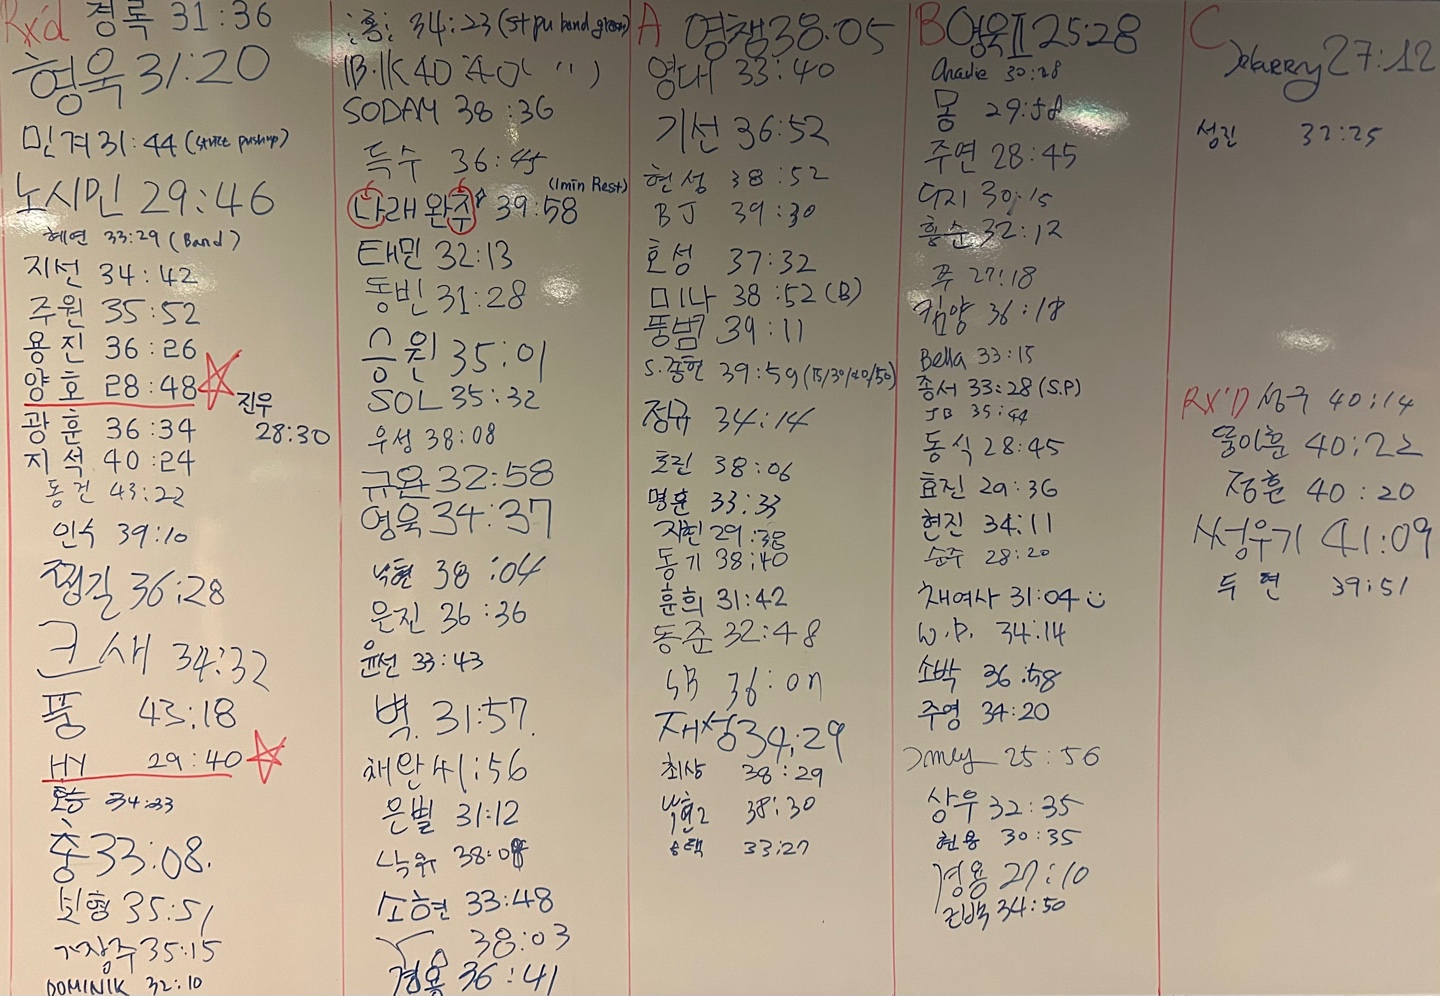 Rx'd 경록 31:36
형욱 31:20
민겨 31:44 (strict pushup)
노시민 29:46
혜연 33:29 (Band)
지선 34:42
주원 35:52
용진 36:26
양호 28:48
진우 28:30
광훈 36:34
지석 40:24
동건 43:22
인수 39:10
쨍길 36:28
크새 34:32
풍 43:18
HY 29:40
34:33
충 33:08.
보형 35:51
가장주 35:15
DOMINIK 32:10
34:23
40
SODAM 38:36
득수 36:45
나래완주 39:58 (1min Rest)
태민 32:13
동빈 31:28
승원 35:01
SOL 35:32
우성 38:08
규완 32:58
영욱 34:37
낙현 38:04
은진 36:36
윤선 33:43
벽. 31:57.
채완 41:56
은별 31:12
38:08
소현 33:48
38:03
경용 36:41
A 영잼 38.05
영대 33:40
기선 36:52
현성 38:52
BJ 39:30
호성 37:32
미나 38:52 (B)
뚱범 39:11
S.종헌 39:59 (15/30/40/50)
정규 34:14
효린 38:06
명훈 33:33
지현 29:38
동기 38:40
훈희 31:42
동준 32:48
SB 36:07
재성 34:29
최상 38:29
낙현2 38:30
승택 33:27
B 영욱II 25:28
Charlie 30:28
몽 29:58
주연 28:45
다지 30:15
흥순 32:12
푸 27:18
킴양 36:18
Bella 33:15
종서 33:28 (S.P)
JB 35:44
동식 28:45
효진 29:36
현진 34:11
승주 28:20
채여사 31:04
W.P. 34:14
소박 36:58
주영 34:20
25:56
상우 32:35
현용 30:35
경용 27:10
34:50
C Harry 27:12
성진 32:25
RX'D 성구 40:14
40:22
정훈 40:20
써성우기 41:09
두현 39:51